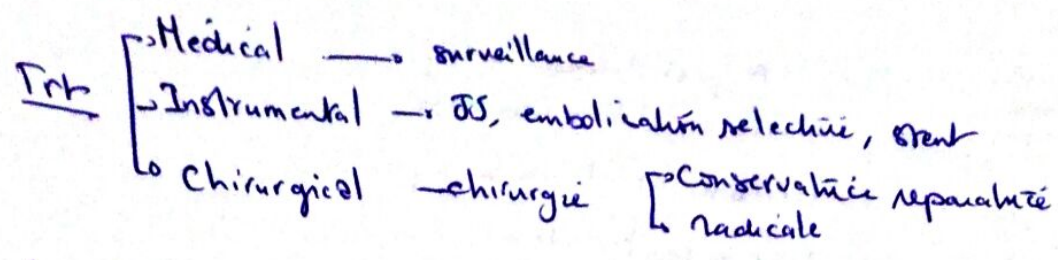 Trt
→ Médical → surveillance
→ Instrumental → JS, embolisation sélective, stent
→ Chirurgical → chirurgie
→ Conservatrice réparatrice
→ radicale